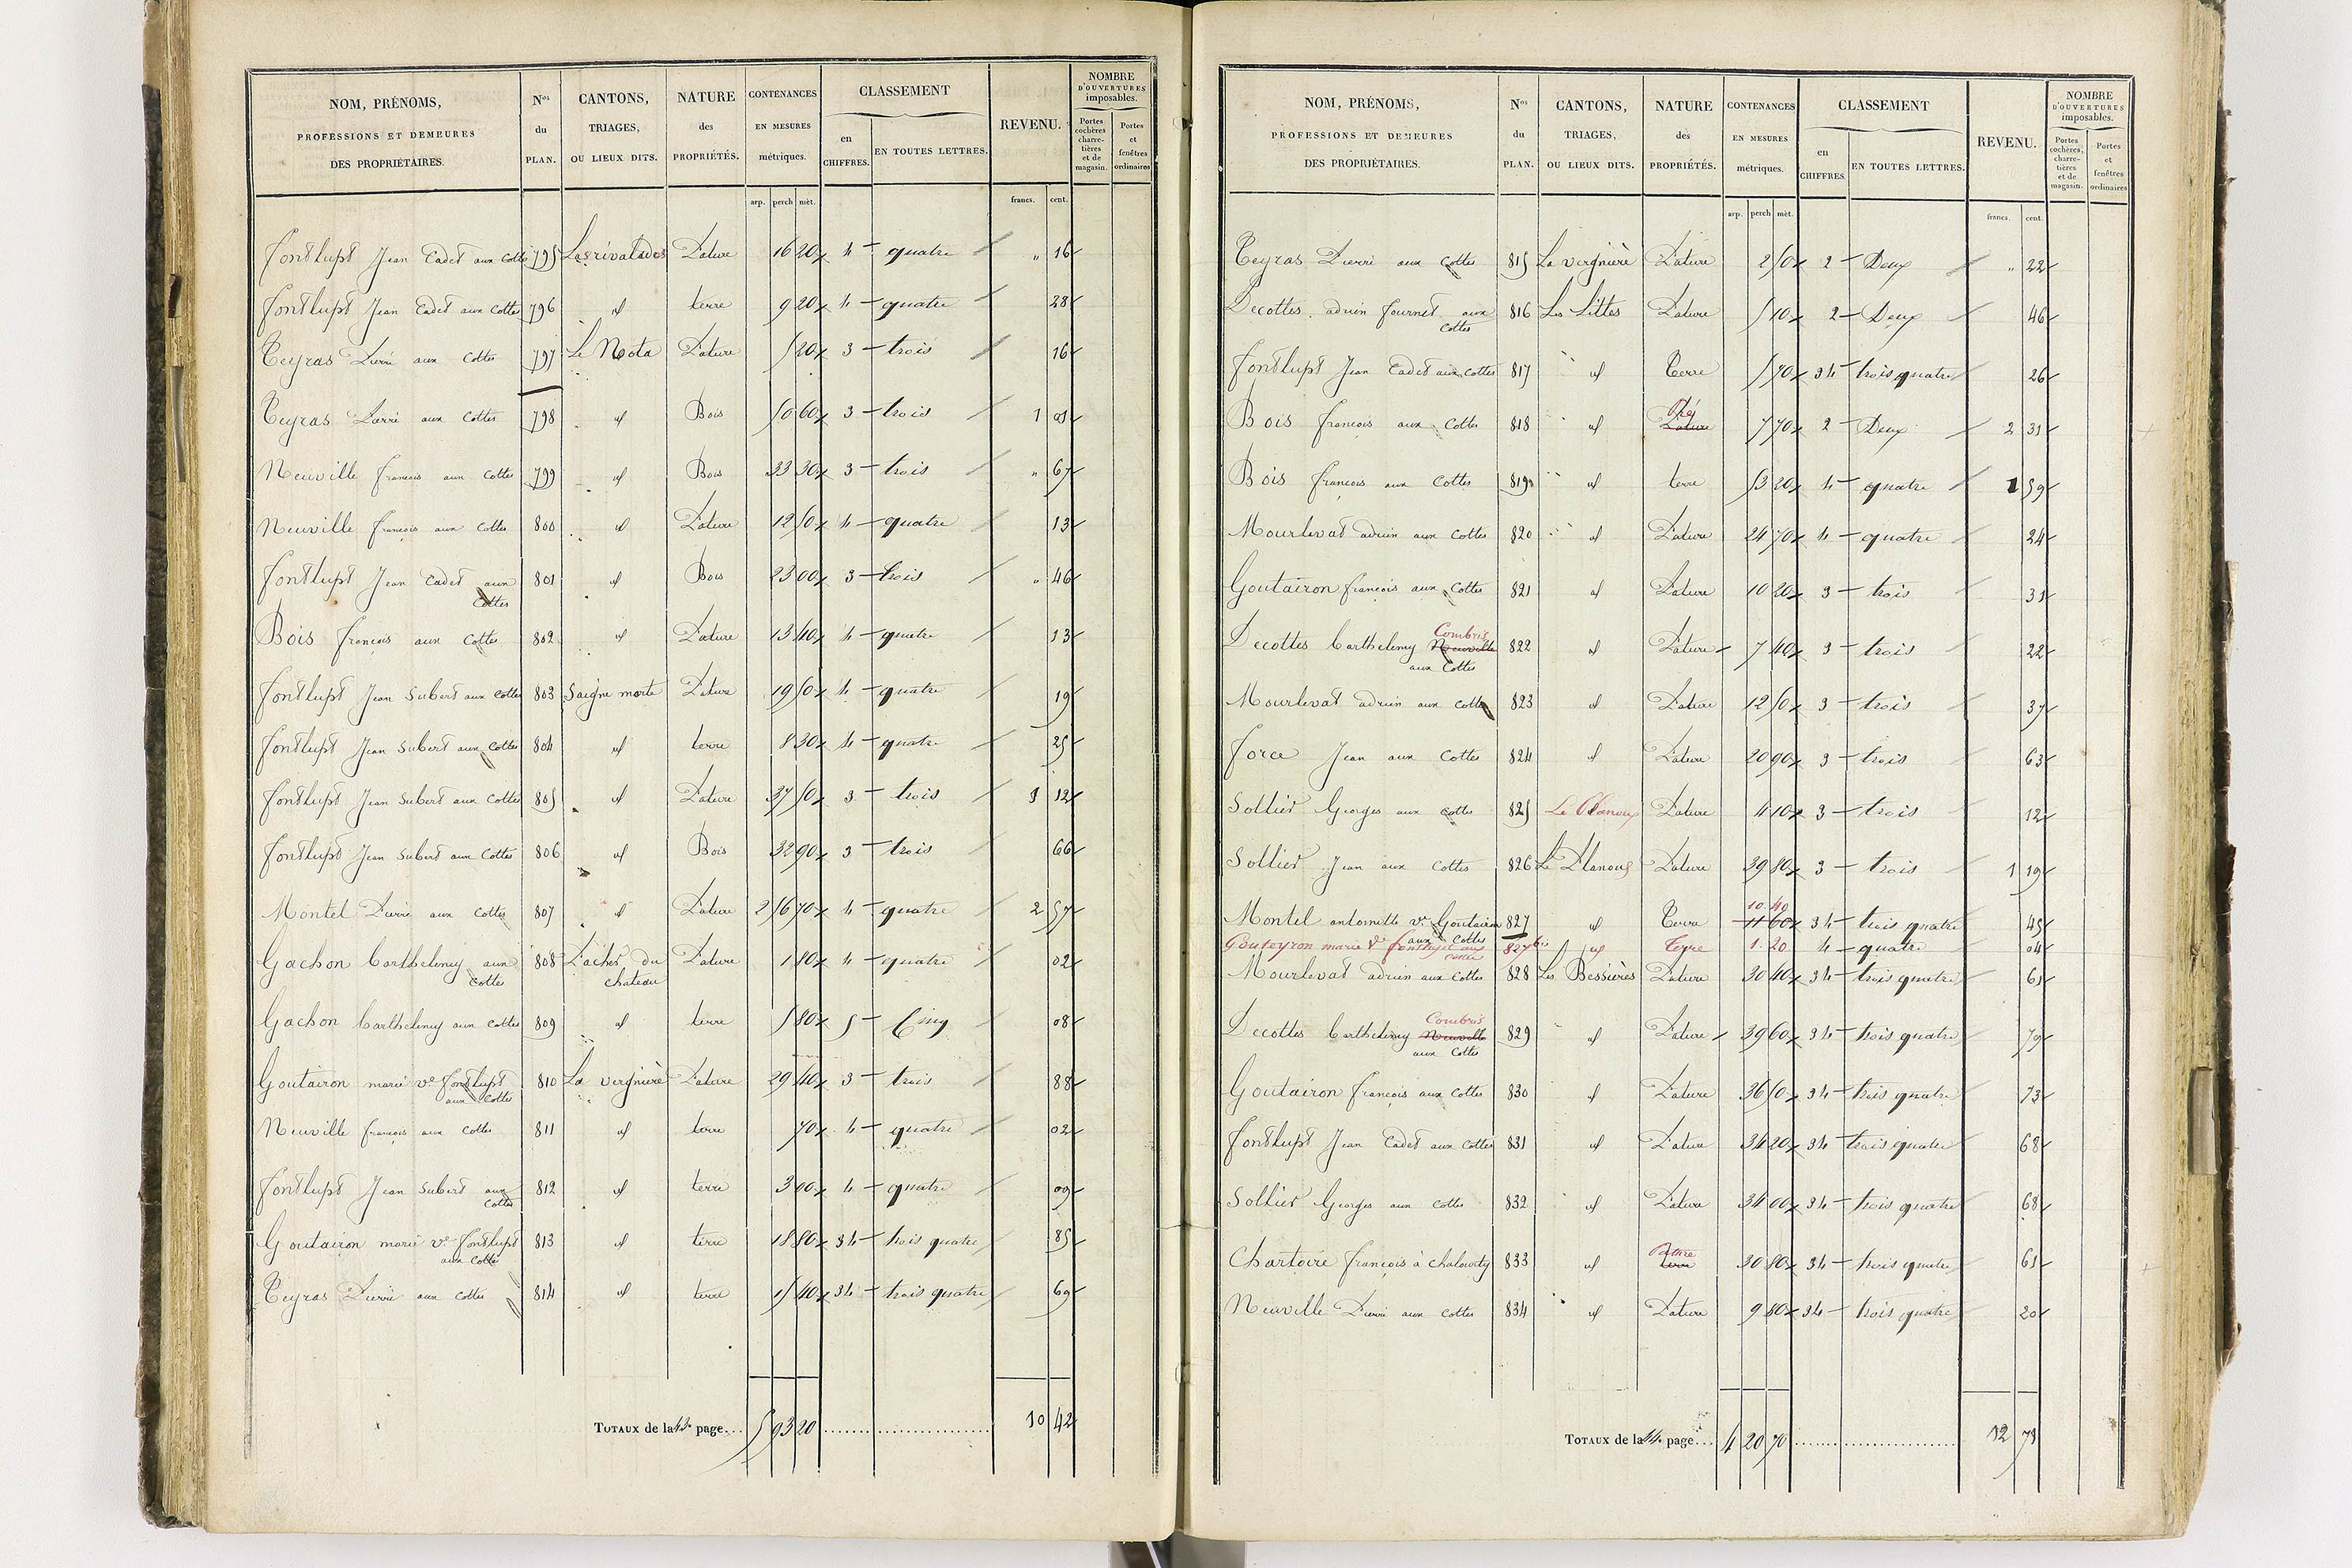 NOM, PRÉNOMS, PROFESSIONS ET DEMEURES DES PROPRIÉTAIRES. | Nos du PLAN. | CANTONS, TRIAGES, OU LIEUX DITS. | NATURE des PROPRIÉTÉS. | CONTENANCES EN MESURES métriques. | CLASSEMENT en CHIFFRES. EN TOUTES LETTRES. | REVENU. | NOMBRE D'OUVERTURES imposables. Portes cochères charretières et de magasin. Portes et fenêtres ordinaires
arp. perch mèt. francs. cent.
fontlupt Jean Cadet aux Cottes 795 Las rivalades Pature 16 20 4 quatre " 16
fontlupt Jean Cadet aux Cottes 796 id terre 9 20 4 quatre 28
Teyras Pierre aux Cottes 797 Le Mota Pature 5 20 3 trois 16
Teyras Pierre aux Cottes 798 id Bois 50 60 3 trois 1 01
Neuville francois aux Cottes 799 id Bois 33 30 3 trois " 67
Neuville francois aux Cottes 800 id Pature 12 50 4 quatre 13
fontlupt Jean Cadet aux Cottes 801 id Bois 23 00 3 trois " 46
Bois francois aux Cottes 802 id Pature 13 40 4 quatre 13
fontlupt Jean Subert aux Cottes 803 Saigne morte Pature 19 50 4 quatre 19
fontlupt Jean Subert aux Cottes 804 id terre 8 30 4 quatre 25
fontlupt Jean Subert aux Cottes 805 id Pature 37 50 3 trois 1 12
fontlupt Jean Subert aux Cottes 806 id Bois 32 90 3 trois 66
Montel Pierre aux Cottes 807 id Pature 2 56 70 4 quatre 2 57
Gachon Barthelemy aux Cottes 808 Paches du chateau Pature 1 80 4 quatre 02
Gachon Barthelemy aux Cottes 809 id terre 5 80 5 Cinq 08
Goutairon marie ve fontlupt aux Cottes 810 La vergnière Pature 29 40 3 trois 88
Neuville francois aux Cottes 811 id terre 70 4 quatre 02
fontlupt Jean Subert aux Cottes 812 id terre 3 00 4 quatre 09
Goutairon marie ve fontlupt aux Cottes 813 id terre 18 80 34 trois quatre 85
Teyras Pierre aux Cottes 814 id terre 15 40 34 trois quatre 69
TOTAUX de la 43e page... 5 93 20 10 42
NOM, PRÉNOMS, PROFESSIONS ET DEMEURES DES PROPRIÉTAIRES. | Nos du PLAN. | CANTONS, TRIAGES, OU LIEUX DITS. | NATURE des PROPRIÉTÉS. | CONTENANCES EN MESURES métriques. | CLASSEMENT en CHIFFRES. EN TOUTES LETTRES. | REVENU. | NOMBRE D'OUVERTURES imposables. Portes cochères, charretières et de magasin. Portes et fenêtres ordinaires
arp. perch mèt. francs. cent.
Teyras Pierre aux Cottes 815 La vergnière Pature 2 50 2 Deux " 22
Decottes adrien fournet aux Cottes 816 Les Littes Pature 5 10 2 Deux 46
fontlupt Jean Cadet aux Cottes 817 id Terre 5 70 34 trois quatre 26
Bois francois aux Cottes 818 id Pature Pré 7 70 2 Deux 2 31
Bois francois aux Cottes 819 id terre 53 20 4 quatre 1 59
Mourlevat adrien aux Cottes 820 id Pature 24 70 4 quatre 24
Goutairon francois aux Cottes 821 id Pature 10 20 3 trois 31
Decottes barthelemy Neuville Combris aux Cottes 822 id Pature 7 40 3 trois 22
Mourlevat adrien aux Cottes 823 id Pature 12 50 3 trois 37
force Jean aux Cottes 824 id Pature 20 90 3 trois 63
Sollier Georges aux Cottes 825 Le Planoux Pature 4 10 3 trois 12
Sollier Jean aux Cottes 826 Le Planoux Pature 39 80 3 trois 1 19
Montel antoinette ve Goutairon aux Cottes 827 id Terre 11 60 10 40 34 trois quatre 45
Gouteyron marie ve fontlupt aux Cottes 827 bis id Terre 1 20 4 quatre 04
Mourlevat adrien aux Cottes 828 Les Bessières Pature 30 40 34 trois quatre 61
Decottes barthelemy Neuville Combris aux Cottes 829 id Pature 39 60 34 trois quatre 79
Goutairon francois aux Cottes 830 id Pature 36 50 34 trois quatre 73
fontlupt Jean Cadet aux Cottes 831 id Pature 34 20 34 trois quatre 68
Sollier Georges aux Cottes 832 id Pature 34 00 34 trois quatre 68
Chartoire francois à 833 id terre Pature 30 80 34 trois quatre 61
Neuville Pierre aux Cottes 834 id Pature 9 80 34 trois quatre 20
TOTAUX de la 44e page... 4 20 70 12 71